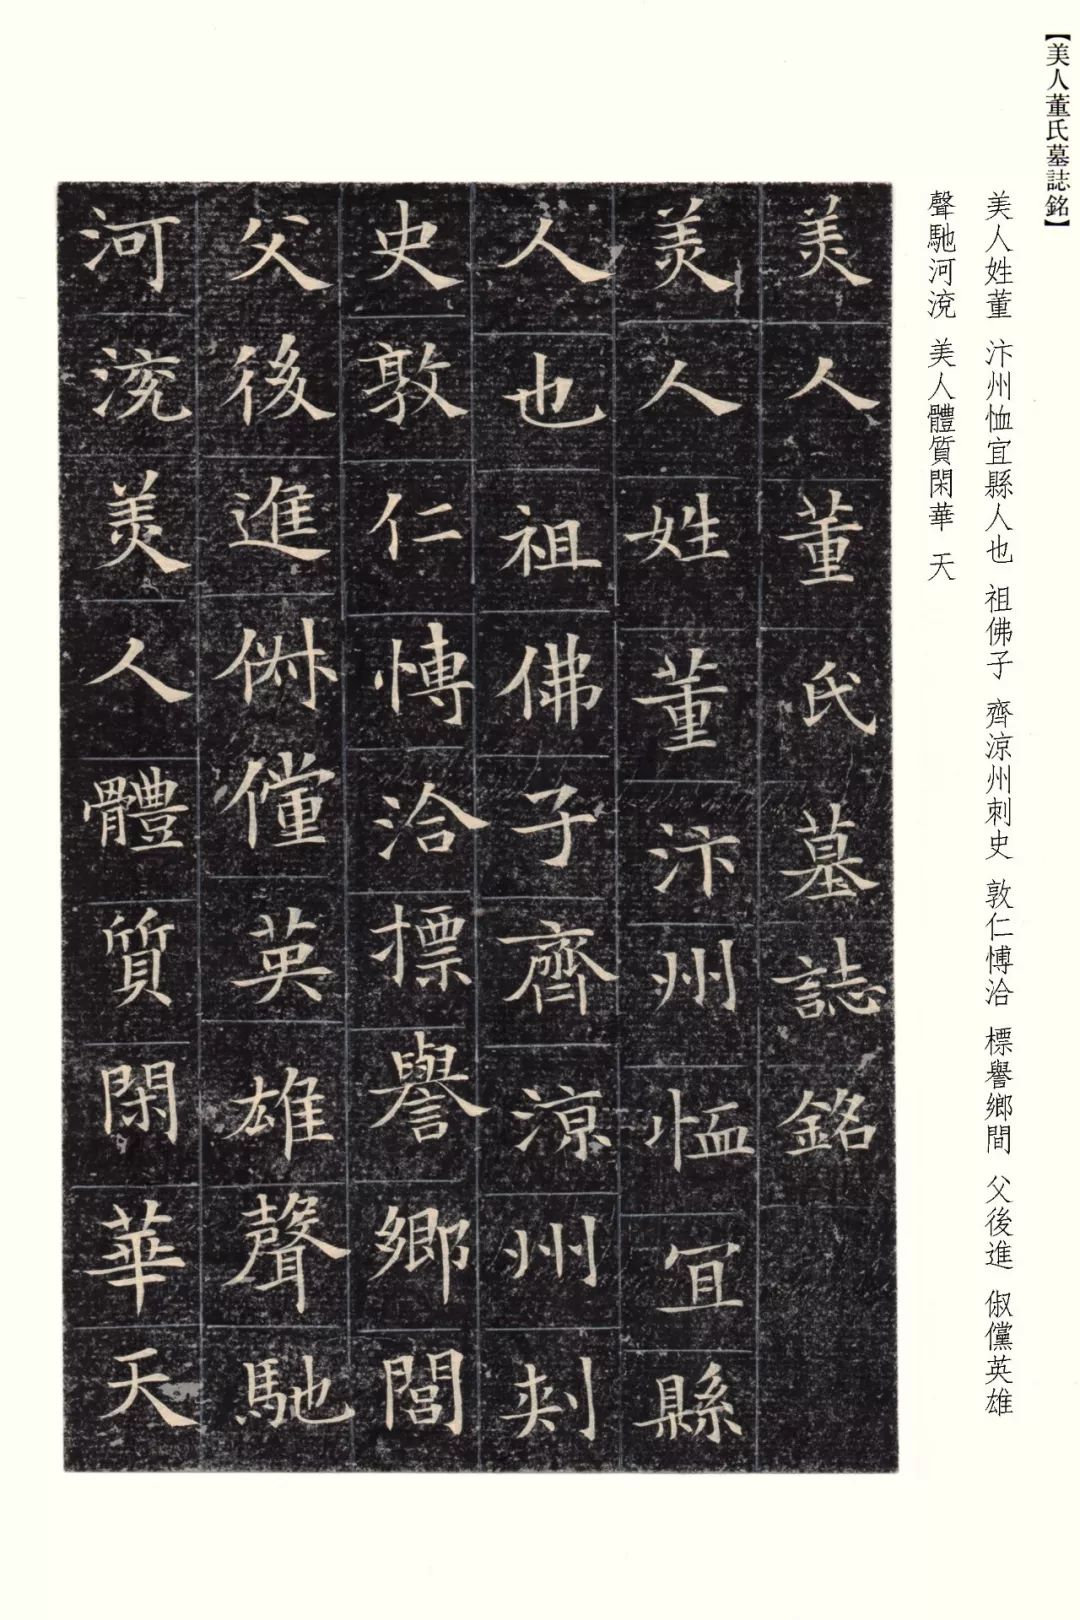 【美人董氏墓誌銘】
美人姓董 汴州恤宜縣人也 祖佛子 齊涼州刺史 敦仁愽洽 標譽鄉間 父後進 俶儻英雄
聲馳河浣 美人體質閑華 天
美人董氏墓誌銘
美人姓董汴州恤宜縣
人也祖佛子齊涼州刾
史敦仁愽洽摽譽鄉閭
父後進俶儻英雄聲馳
河浣美人體質閑華天